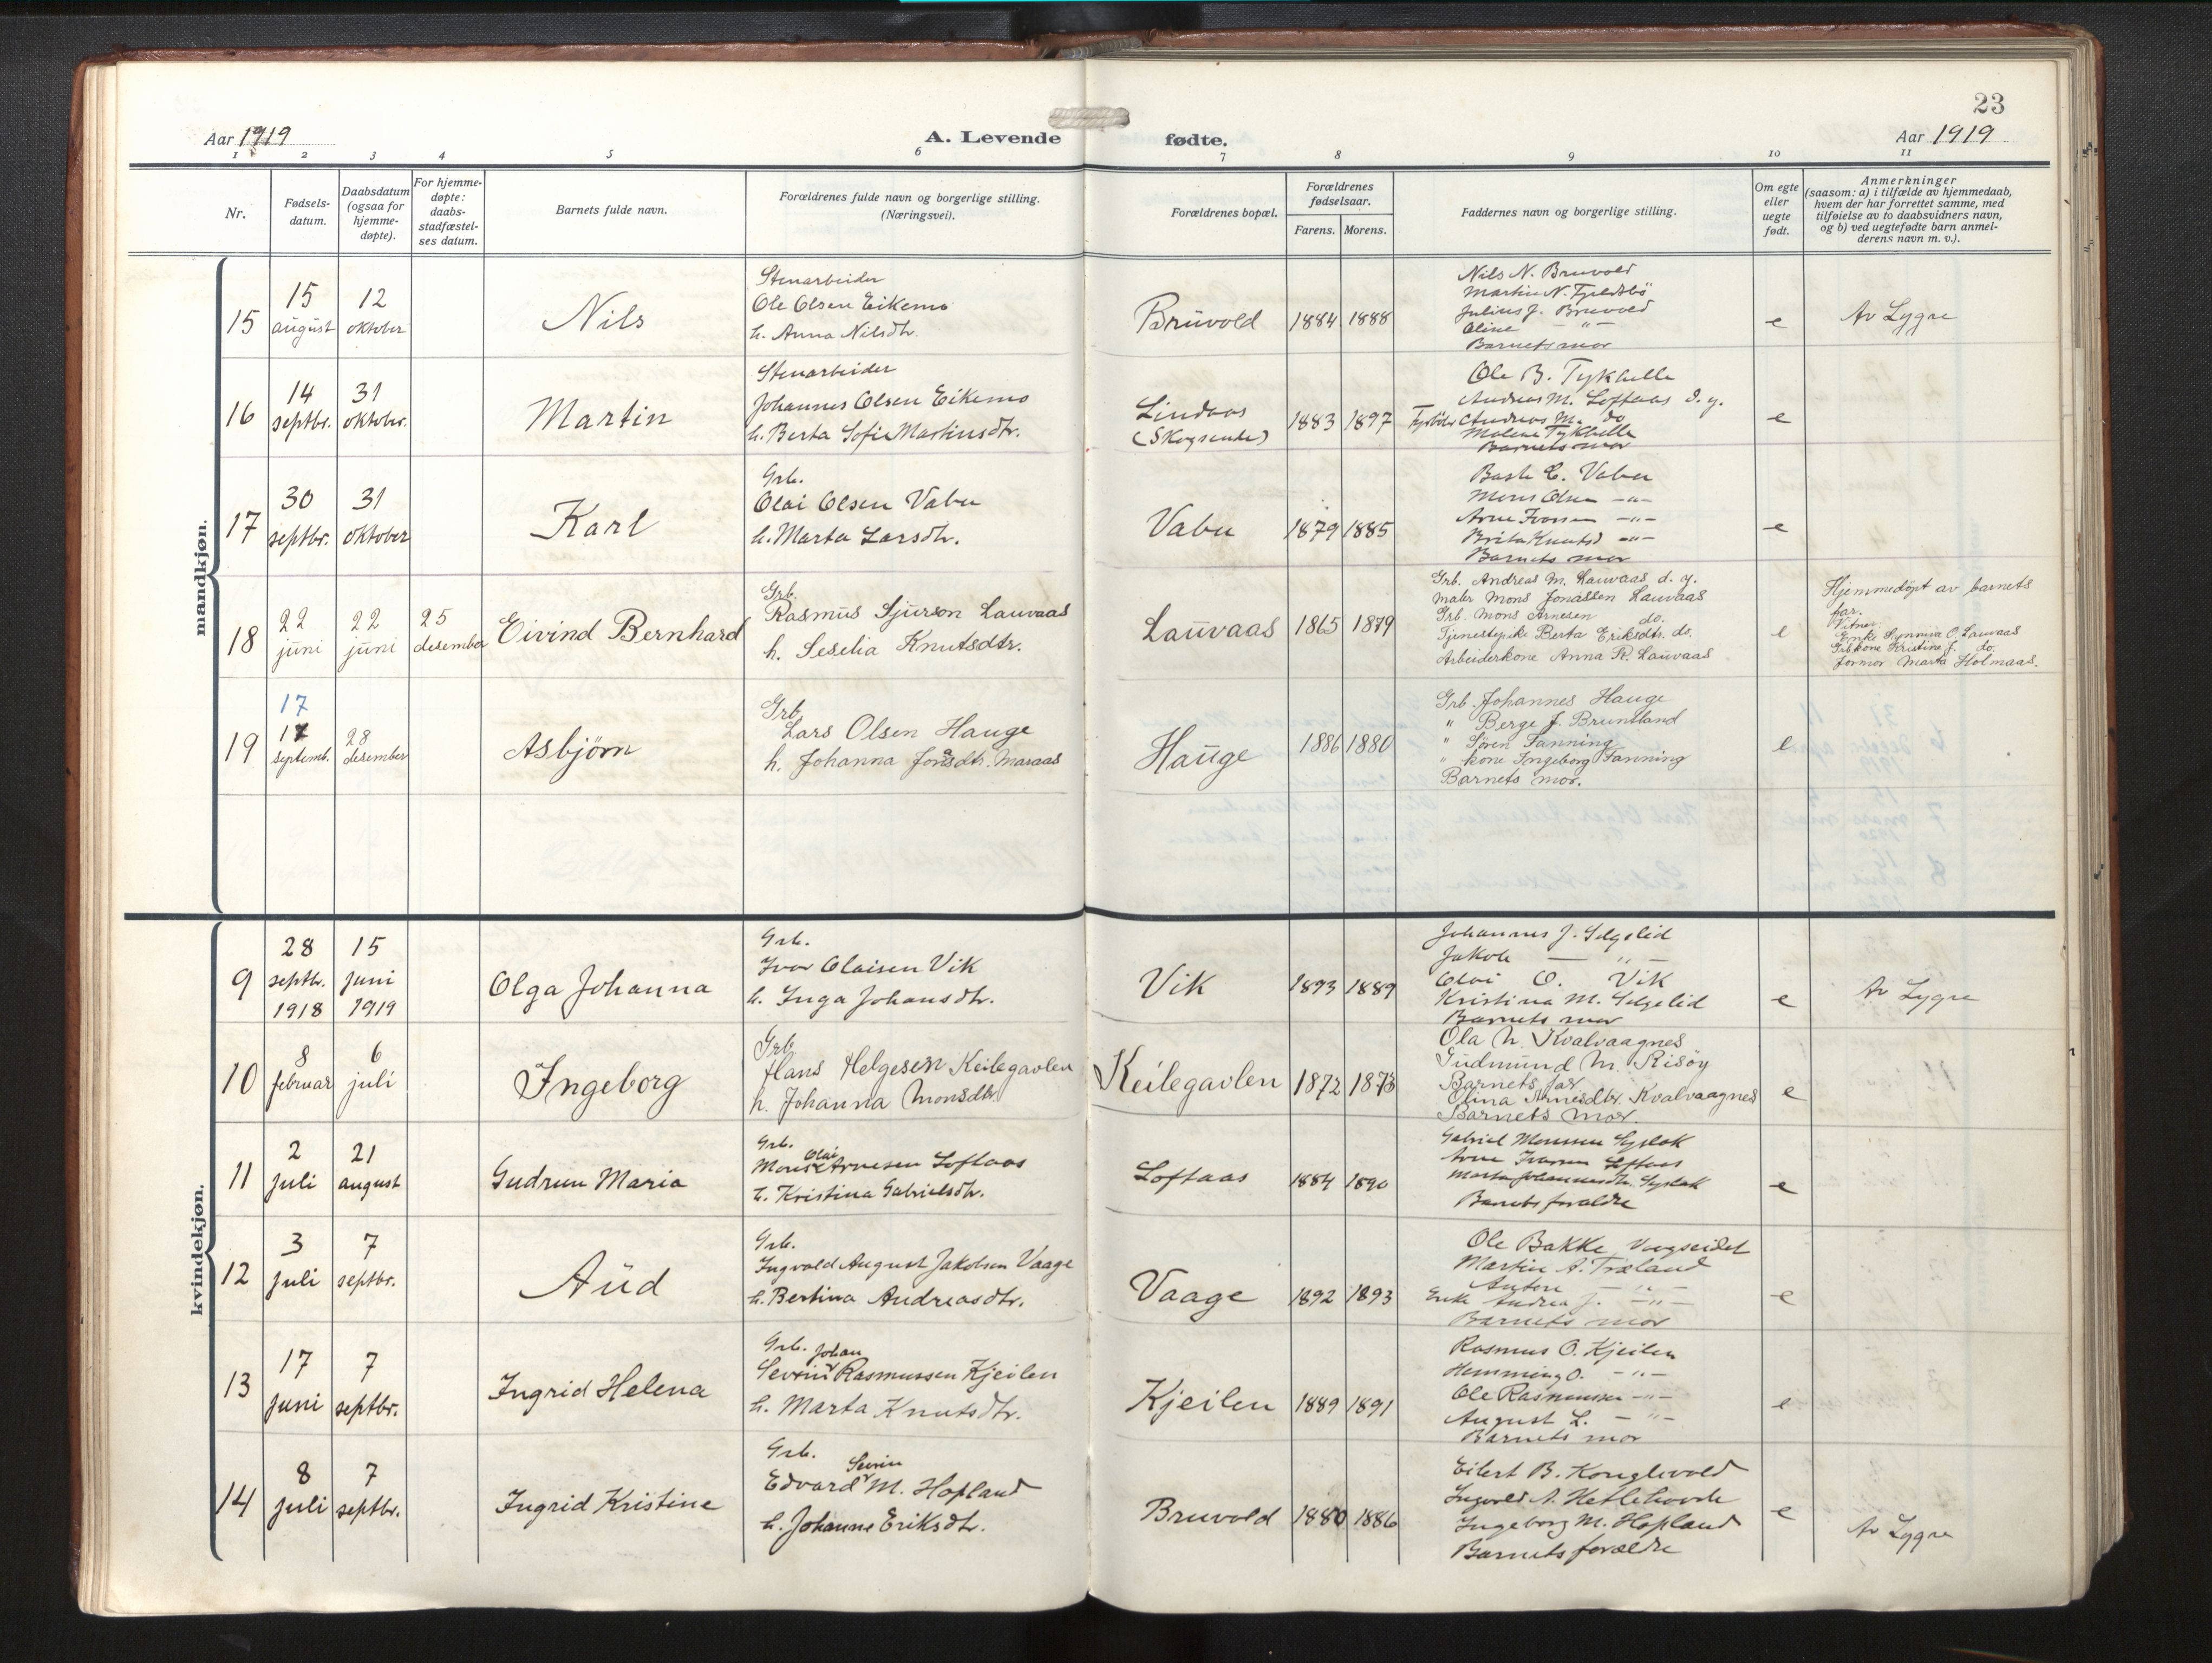 23
Aar 1919
A. Levende
fødte.
Aar 1919
1 2 3 4 5 6 7 8 9 10 11
Nr.
Fødsels-
datum.
Daabsdatum
(ogsaa for
hjemme-
døpte).
For hjemme-
døpte:
daabs-
stadfæstel-
ses datum.
Barnets fulde navn.
Forældrenes fulde navn og borgerlige stilling.
(Næringsvei).
Forældrenes bopæl.
Forældrenes
fødselsaar.
Farens. Morens.
Faddernes navn og borgerlige stilling.
Om egte
eller
uegte
født.
Anmerkninger
(saasom: a) i tilfælde av hjemmedaab,
hvem der har forrettet samme, med
tilføielse av to daabsvidners navn,
og b) ved uegtefødte barn anmel-
derens navn m. v.).
mandkjøn.
15
15
august
12
oktober
Nils
Stenarbeider
Ole Olsen Eikemo
h. Anna Nilsdtr.
Bruvold
1884 1888
Nils N. Bruvold
Martin N. Fjeldsbö
Julius J. Bruvold
Oline — " —
Barnets mor
e
Av Lygre
16
14
septbr.
31
oktober.
Martin
Stenarbeider
Johannes Olsen Eikemo
h. Berta Sofie Martinsdtr.
Lindaas
(Skogsende)
1883 1897
Ole B. Tykhelle
Andreas M. Loftaas d. y.
Andreas M. do
Malene Tykhelle
Barnets mor
e
17
30
septbr.
31
oktober
Karl
Grb.
Olai Olsen Vabu
h. Marta Larsdtr.
Vabu
1879 1885
C. Vabu
Mons Olsen — " —
Arne Iversen — " —
Brita Knutsd — " —
Barnets mor
e
18
22
juni
22
juni
25
desember
Eivind Bernhard
Grb.
Rasmus Sjurson Lauvaas
h. Seselia Knutsdtr.
Lauvaas
1865 1879
Grb. Andreas M. Lauvaas d. y.
Maler Mons Jonassen Lauvaas
Grb. Mons Arnesen do.
Tjenestepike Berta Eriksdtr. do.
Arbeiderkone Anna R. Lauvaas
e
Hjemmedöpt av barnets
far.
Vitner:
Enke Synniva O. Lauvaas
Grbkone Kristine J. do.
Jormor Marta Holmaas.
19
17
17
septemb.
28
desember
Asbjörn
Grb.
Lars Olsen Hauge
h. Johanna Jonsdtr. Maraas
Hauge
1886 1880
Grb. Johannes Hauge
" Berge J. Bruntland
" Sören Fanning
" kone Ingeborg Fanning
Barnets mor.
e
kvindekjøn.
9
28
septbr.
1918
15
juni
1919
Olga Johanna
Grb.
Ivar Olaisen Vik
h. Inga Johansdtr.
Vik
1893 1889
Johannes J. Selgelid
Jakob — " —
Olai O. Vik
Kristina M. Selgelid
Barnets mor
e
Av Lygre
10
8
februar
6
juli
Ingeborg
Grb.
Hans Helgesen Keilegavlen
h. Johanna Monsdtr.
Keilegavlen
1872 1873
Ola N. Kvalvaagnes
Gudmund M. Risöy
Barnets far
Olina Arnesdtr. Kvalvaagnes
Barnets mor.
e
11
2
juli
21
august
Gudrun Maria
Grb.
Olai
Mons Arnesen Loftaas
h. Kristina Gabrielsdtr.
Loftaas
1884 1890
Gabriel Monsen Syslak
Arne Ivarsen Loftaas
Marta Johannesdtr. Syslak
Barnets forældre
e
12
3
juli
7
septbr.
Aud
Grb.
Ingvald August Jakobsen Vaage
h. Bertina Andreasdtr.
Vaage
1892 1893
Ole Bakke Vaagseidet
Martin A. Træland
Antone — " —
Enke Andrea J. — " —
Barnets mor
e
13
17
juni
7
septbr.
Ingrid Helena
Grb. Johan
Severin Rasmussen Kjeilen
h. Marta Knutsdtr.
Kjeilen
1889 1891
Rasmus O. Kjeilen
Hemming O. — " —
Ole Rasmussen — " —
August L. — " —
Barnets mor
e
14
8
juli
7
septbr.
Ingrid Kristine
Grb.
Severin
Edvard M. Hopland
h. Johanne Eriksdtr.
Bruvold
1880 1886
Eilert B. Konglevold
Ingvald A. Hetlehovde
Ingeborg M. Hopland
Barnets forældre
e
Av Lygre